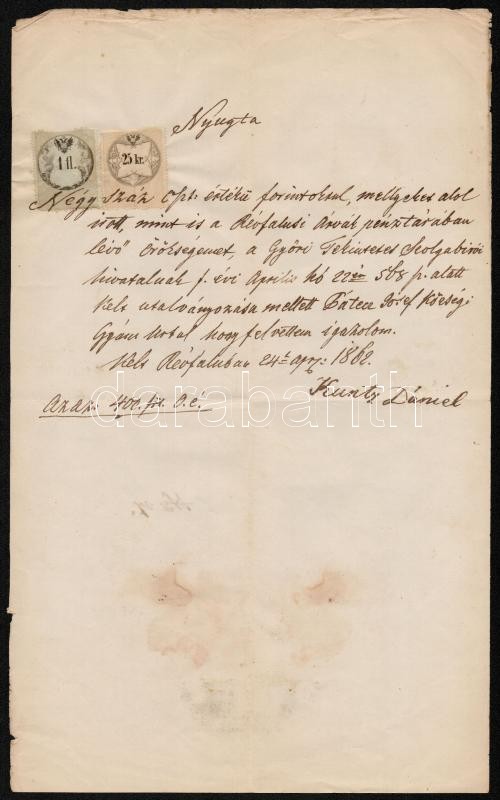 Nyugta
1 fl.
25 kr.
Négy száz Opt. értékű forintokrul, mellyeket alol
irott, mint is a Révfalusi Árvák pénztárában
lévő örökségemet, a Győri Tekintetes Szolgabirói
hivatalnak f. évi Április hó 22én 508 p. alatt
kelt utalványozása mellett József Községi
Gyám Urtol hogy felvettem igazolom.
Kelt Révfaluban 24 apr. 1862.
Kunitz Dániel
Azaz 400. frt O. é.
darabanth